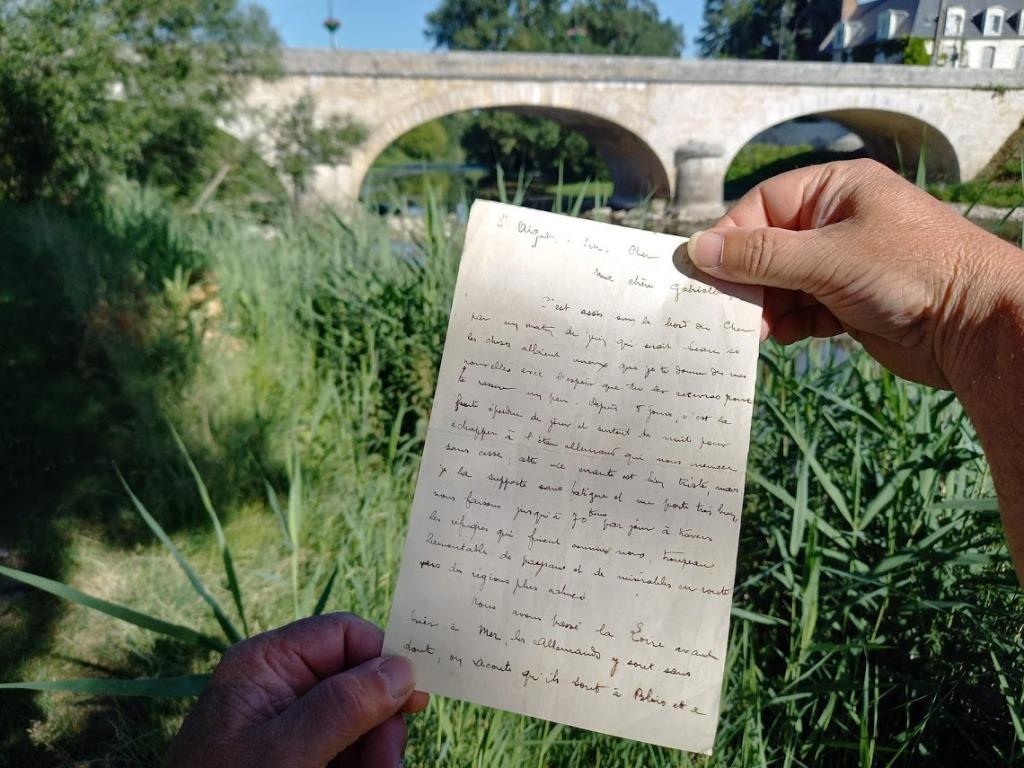 St Aignan - sur - Cher
ma chère Gabrielle,
C'est assis sur le bord du Cher
par un matin de juin qui serait beau si
les choses allaient mieux que je te donne de mes
nouvelles avec l'espoir que tu les recevras pour
te rassurer un peu. depuis 8 jours, c'est la
fuite éperdue de jour et surtout de nuit pour
échapper à l'étau allemand qui nous menace
sans cesse; cette vie errante est bien triste, mais
je la supporte sans fatigue et me porte très bien,
nous faisons jusqu'à 70 kms par jour à travers
les réfugiés qui fuient comme nous, troupeau
lamentable de paysans et de misérables en route
vers des régions plus calmes
Nous avons passé la Loire avant
hier à Mer, les Allemands y sont sans
doute, on raconte qu'ils sont à Blois et à